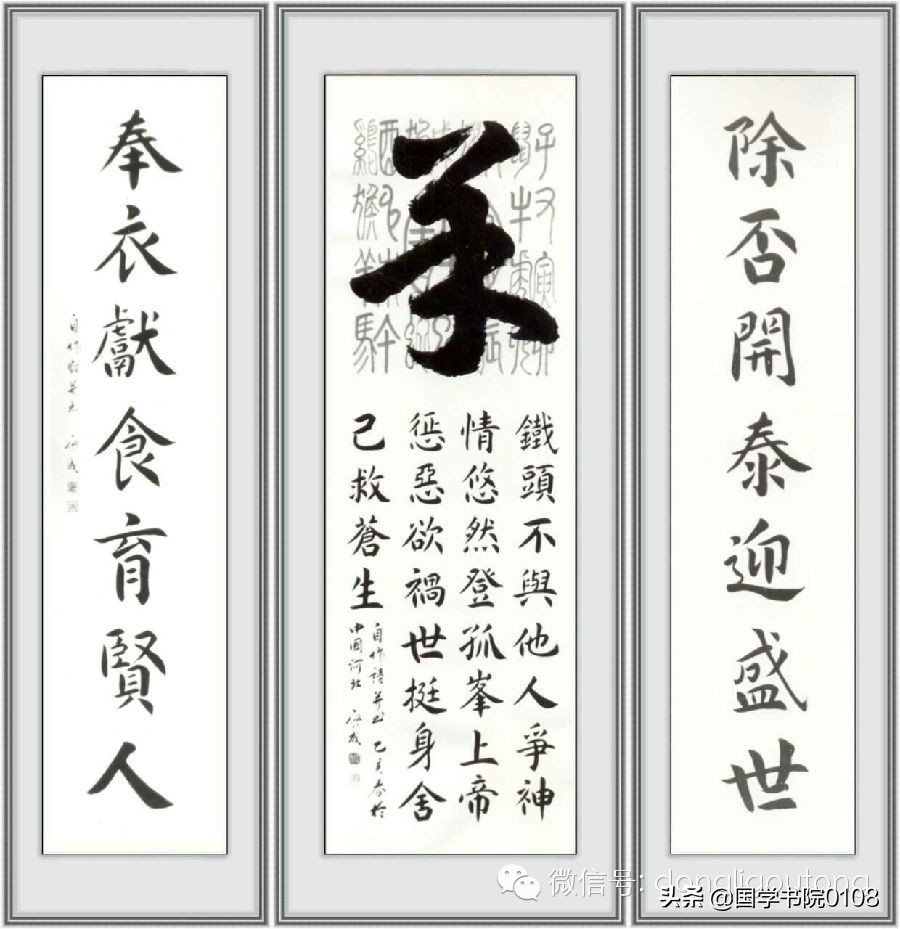 除否開泰迎盛世
羊
鐵頭不與他人爭神
情悠然登孤峯上帝
懲惡欲禍世挺身舍
己救蒼生
自作詩并书
中國河北
奉衣獻食育賢人
微信号: dongligoutong
头条 @国学书院0108